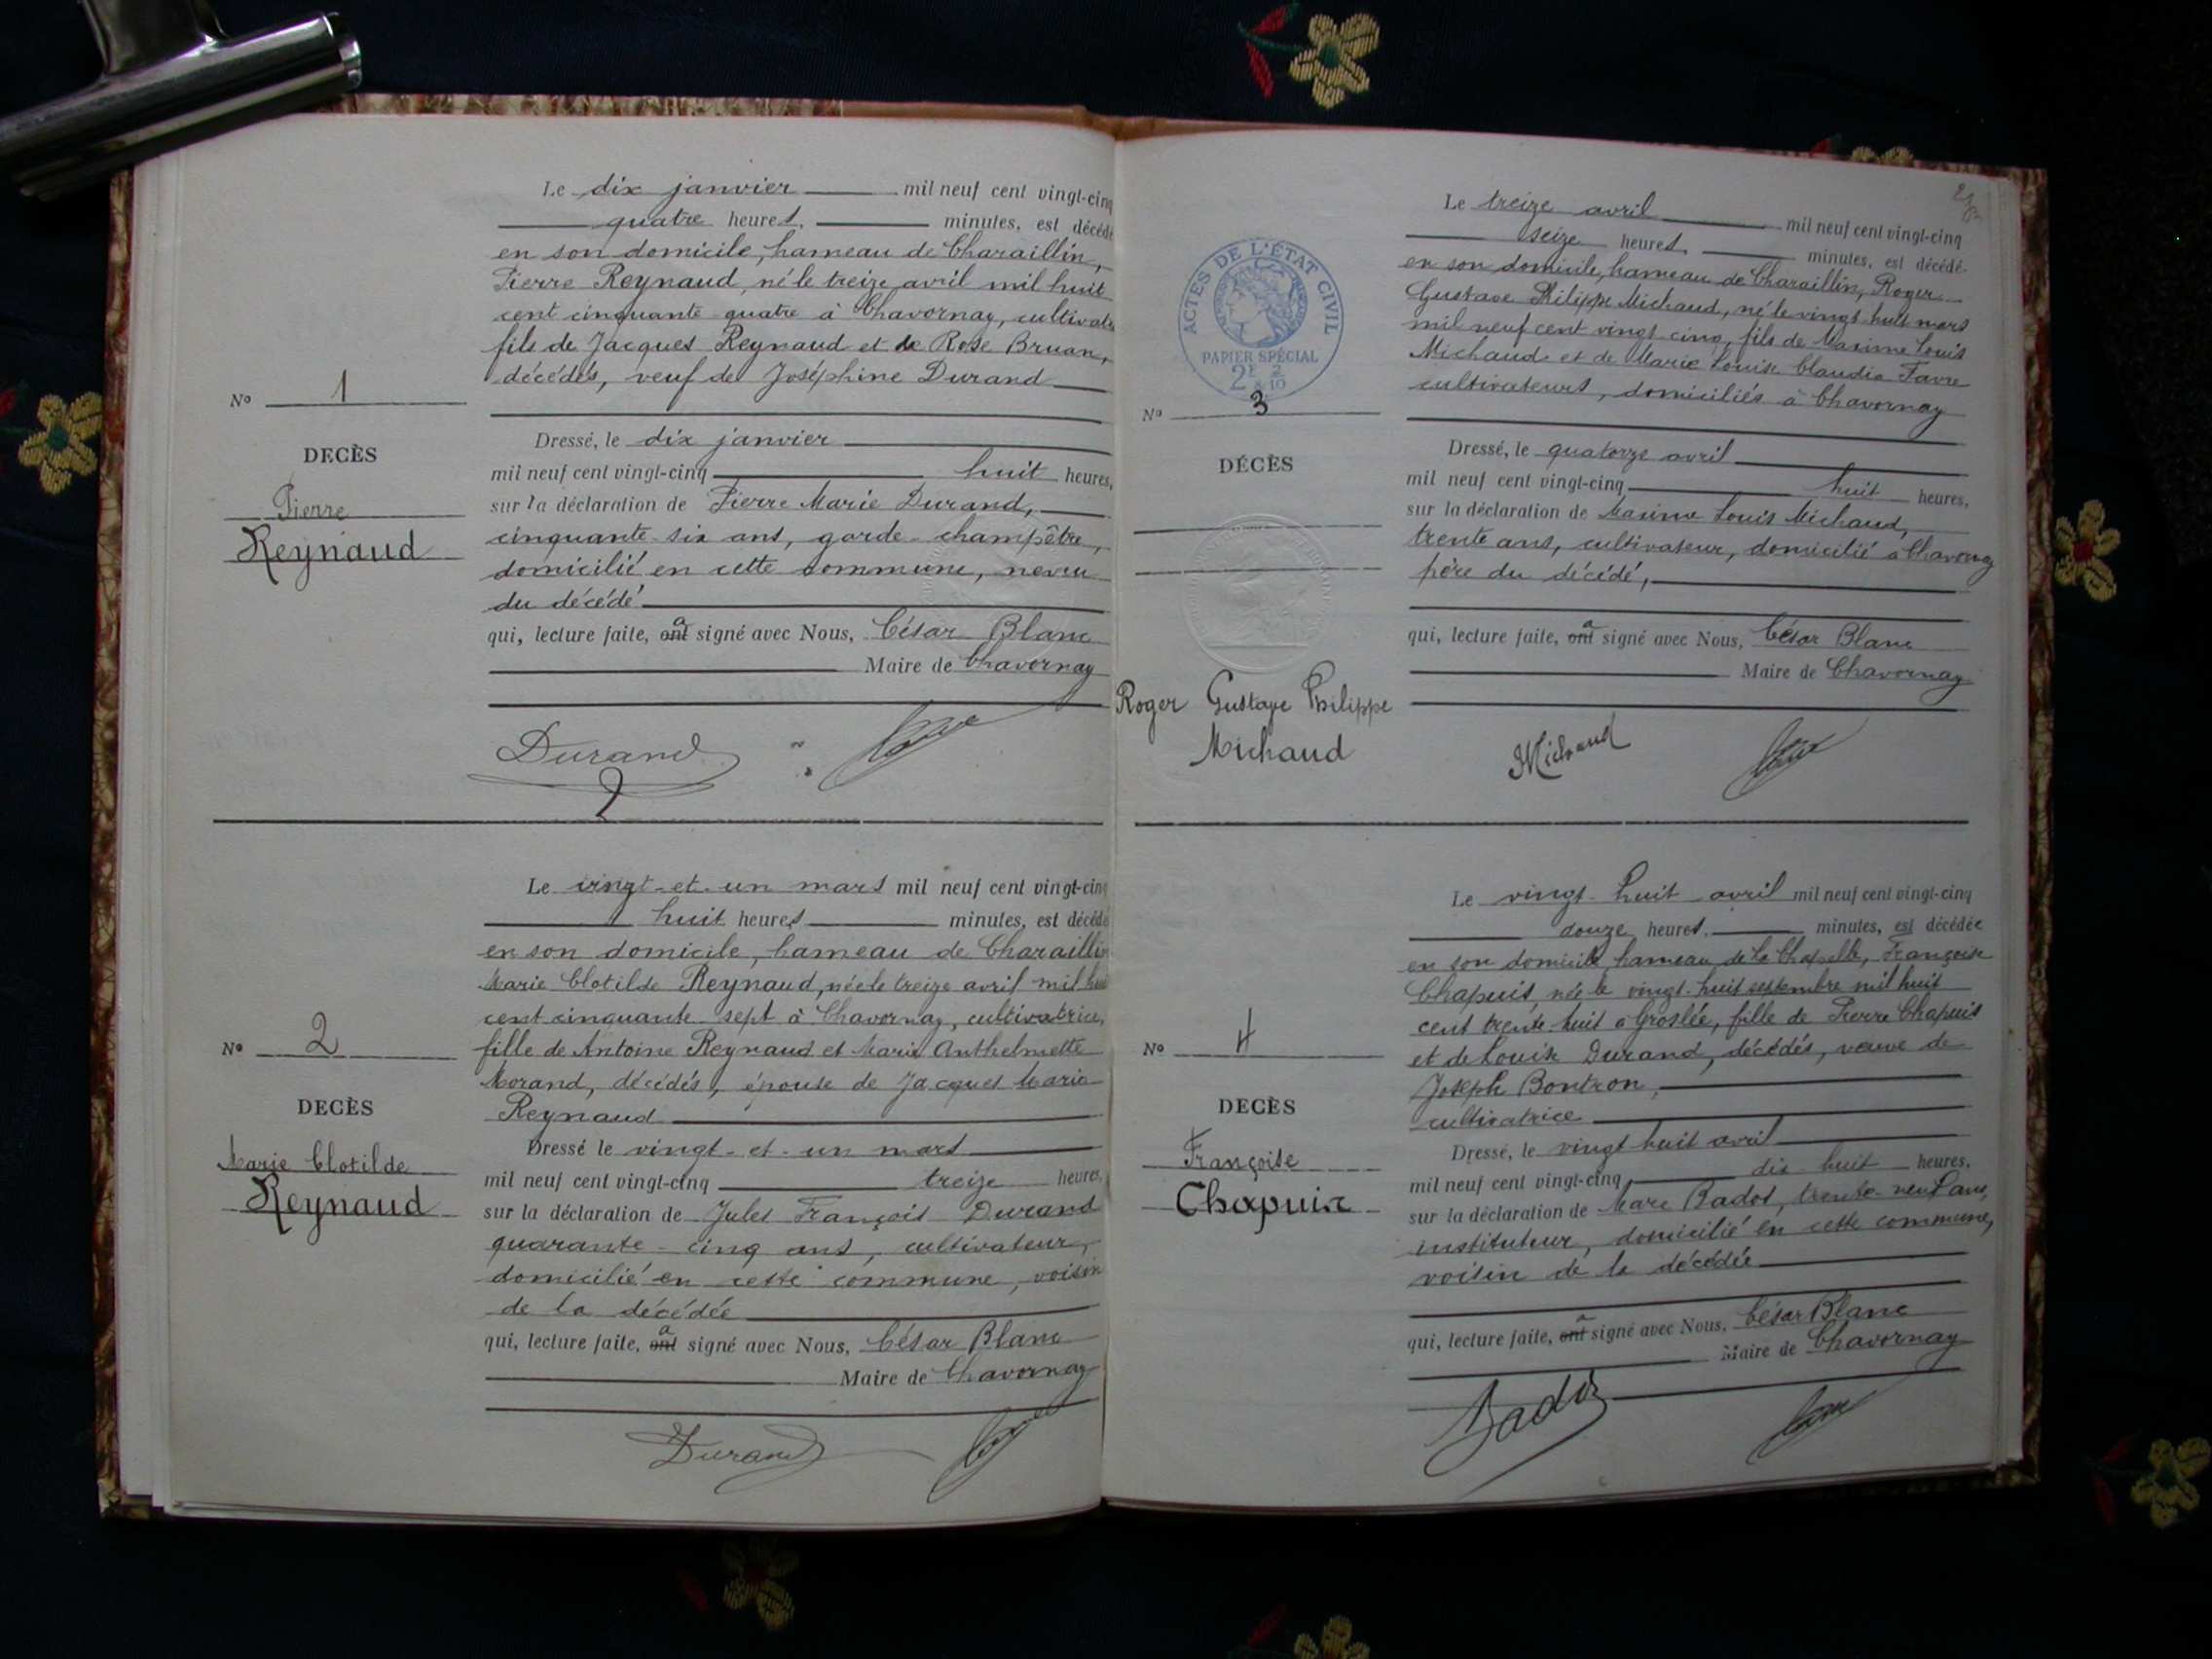 Le dix janvier mil neuf cent vingt-cinq
quatre heures, minutes, est décédé
en son domicile, hameau de Charaillin,
Pierre Reynaud, né le treize avril mil huit
cent cinquante quatre à Chavornay, cultivate
fils de Jacques Reynaud et de Rose Bruan,
décédés, veuf de Joséphine Durand
No 1
DECÈS
Pierre
Reynaud
Dressé, le dix janvier
mil neuf cent vingt-cinq huit heures,
sur la déclaration de Pierre Marie Durand,
cinquante-six ans, garde-champêtre,
domicilié en cette commune, neveu
du décédé
qui, lecture faite, ont a signé avec Nous, César Blanc
Maire de Chavornay
Durand
No 2
DECÈS
Marie Clotilde
Reynaud
Le vingt-et-un mars mil neuf cent vingt-cinq
huit heures minutes, est décédé
en son domicile, hameau de Charaillin
Marie Clotilde Reynaud, née le treize avril mil huit
cent cinquante-sept à Chavornay, cultivatrice,
fille de Antoine Reynaud et Marie Anthelmette
Morand, décédés, épouse de Jacques Marie
Reynaud
Dressé le vingt-et-un mars
mil neuf cent vingt-cinq treize heures,
sur la déclaration de Jules François Durand
quarante-cinq ans, cultivateur,
domicilié en cette commune, voisin
de la décédée
qui, lecture faite, ont a signé avec Nous, César Blanc
Maire de Chavornay
Durand
ACTES DE L'ÉTAT CIVIL
PAPIER SPÉCIAL
2F 2/10
No 3
DÉCÈS
Roger Gustave Philippe
Michaud
Le treize avril mil neuf cent vingt-cinq
seize heures minutes, est décédé
en son domicile, hameau de Charaillin, Roger
Gustave Philippe Michaud, né le vingt-huit mars
mil neuf cent vingt-cinq, fils de Maxime Louis
Michaud et de Marie Louise Claudia Favre
cultivateurs, domiciliés à Chavornay
Dressé, le quatorze avril
mil neuf cent vingt-cinq huit heures,
sur la déclaration de Maxime Louis Michaud,
trente ans, cultivateur, domicilié à Chavornay
père du décédé,
qui, lecture faite, ont a signé avec Nous, César Blanc
Maire de Chavornay
Michaud
No 4
DECÈS
Françoise
Chapuis
Le vingt-huit avril mil neuf cent vingt-cinq
douze heures, minutes, est décédée
en son domicile, hameau de la Chapelle, Françoise
Chapuis, née le vingt-huit septembre mil huit
cent trente-huit à Groslée, fille de Pierre Chapuis
et de Louise Durand, décédés, veuve de
Joseph Bontron,
cultivatrice
Dressé, le vingt-huit avril
mil neuf cent vingt-cinq dix-huit heures,
sur la déclaration de Marc Badot, trente-neuf ans,
instituteur, domicilié en cette commune,
voisin de la décédée
qui, lecture faite, ont a signé avec Nous, César Blanc
Maire de Chavornay